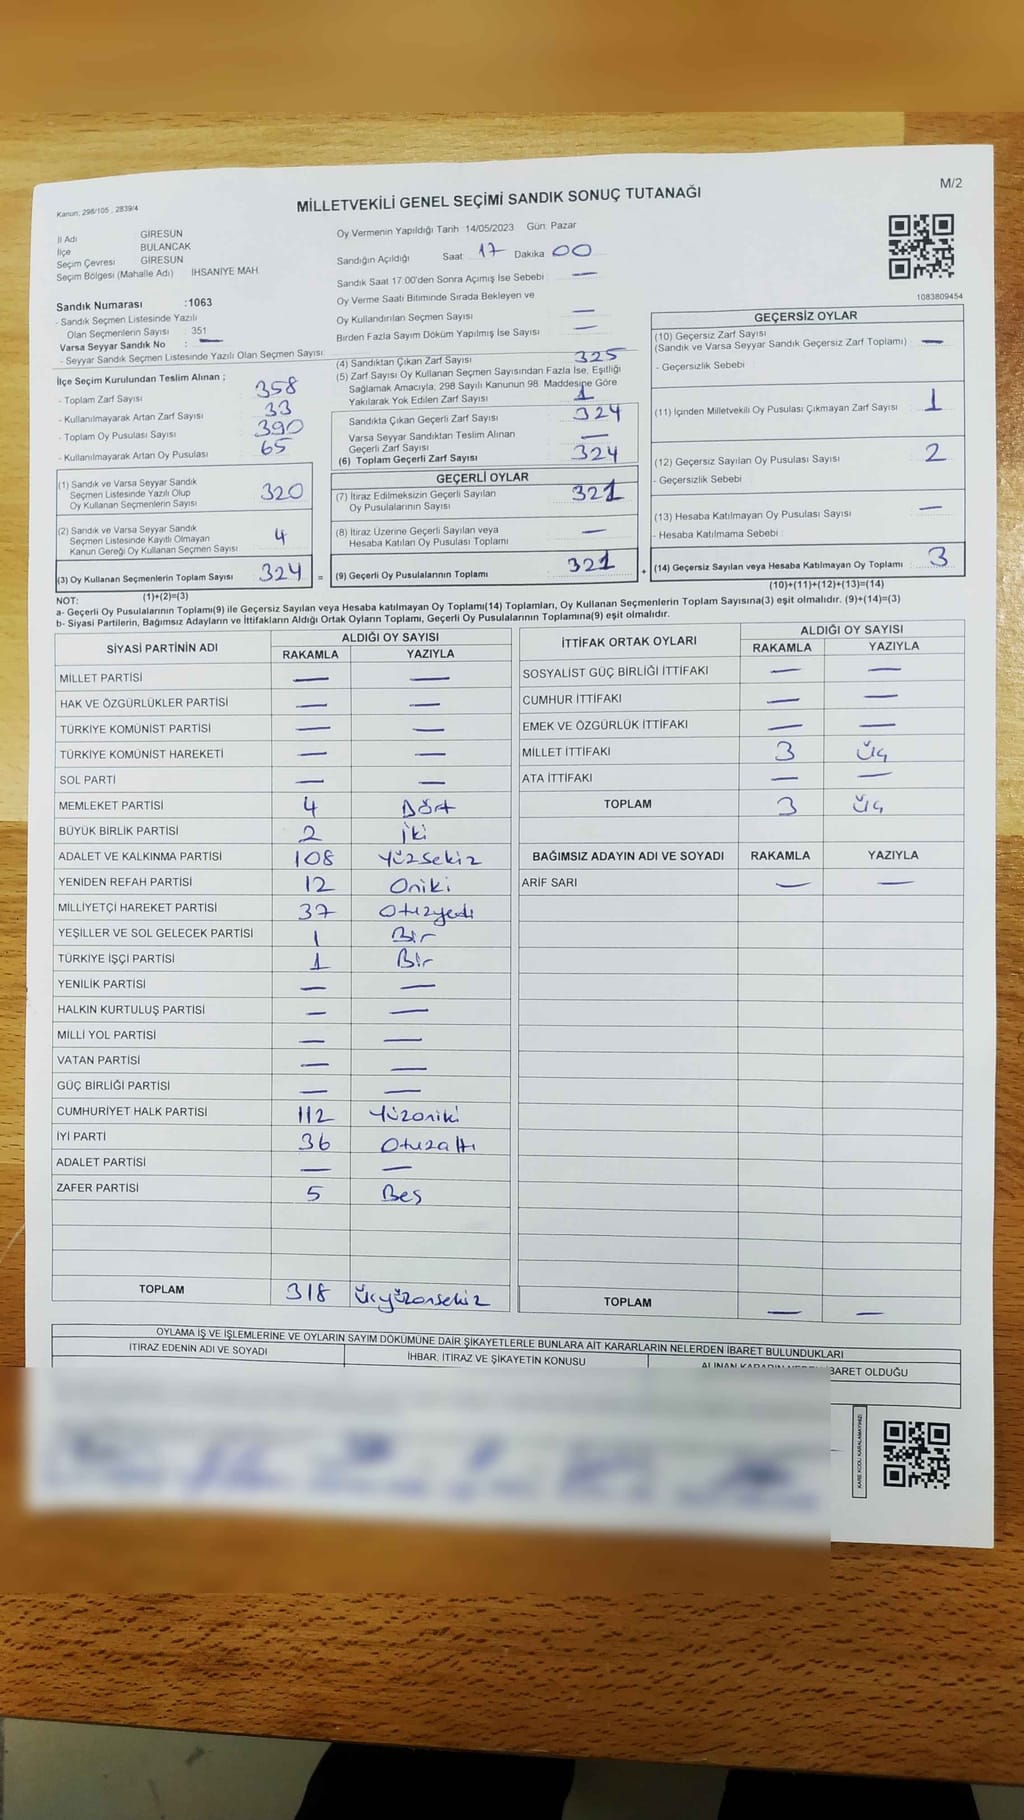 M/2
Kanun: 298/105 , 2839/4
MİLLETVEKİLİ GENEL SEÇİMİ SANDIK SONUÇ TUTANAĞI
İl Adı GİRESUN
İlçe BULANCAK
Seçim Çevresi GİRESUN
Seçim Bölgesi (Mahalle Adı) İHSANİYE MAH.
Sandık Numarası :1063
- Sandık Seçmen Listesinde Yazılı
Olan Seçmenlerin Sayısı : 351
Varsa Seyyar Sandık No : —
- Seyyar Sandık Seçmen Listesinde Yazılı Olan Seçmen Sayısı:
Oy Vermenin Yapıldığı Tarih 14/05/2023 Gün: Pazar
Sandığın Açıldığı Saat 17 Dakika 00
Sandık Saat 17:00'den Sonra Açımış İse Sebebi : —
Oy Verme Saati Bitiminde Sırada Bekleyen ve
Oy Kullandırılan Seçmen Sayısı —
Birden Fazla Sayım Döküm Yapılmış İse Sayısı —
1083809454
İlçe Seçim Kurulundan Teslim Alınan ;
- Toplam Zarf Sayısı 358
- Kullanılmayarak Artan Zarf Sayısı 33
- Toplam Oy Pusulası Sayısı 390
- Kullanılmayarak Artan Oy Pusulası 65
(1) Sandık ve Varsa Seyyar Sandık
Seçmen Listesinde Yazılı Olup
Oy Kullanan Seçmenlerin Sayısı 320
(2) Sandık ve Varsa Seyyar Sandık
Seçmen Listesinde Kayıtlı Olmayan
Kanun Gereği Oy Kullanan Seçmen Sayısı 4
(3) Oy Kullanan Seçmenlerin Toplam Sayısı 324 =
(1)+(2)=(3)
(4) Sandıktan Çıkan Zarf Sayısı 325
(5) Zarf Sayısı Oy Kullanan Seçmen Sayısından Fazla İse, Eşitliği
Sağlamak Amacıyla, 298 Sayılı Kanunun 98. Maddesine Göre
Yakılarak Yok Edilen Zarf Sayısı 1
Sandıkta Çıkan Geçerli Zarf Sayısı 324
Varsa Seyyar Sandıktan Teslim Alınan
Geçerli Zarf Sayısı —
(6) Toplam Geçerli Zarf Sayısı 324
GEÇERLİ OYLAR
(7) İtiraz Edilmeksizin Geçerli Sayılan
Oy Pusulalarının Sayısı 321
(8) İtiraz Üzerine Geçerli Sayılan veya
Hesaba Katılan Oy Pusulası Toplamı —
(9) Geçerli Oy Pusulalarının Toplamı 321 +
GEÇERSİZ OYLAR
(10) Geçersiz Zarf Sayısı
(Sandık ve Varsa Seyyar Sandık Geçersiz Zarf Toplamı) —
- Geçersizlik Sebebi
(11) İçinden Milletvekili Oy Pusulası Çıkmayan Zarf Sayısı 1
(12) Geçersiz Sayılan Oy Pusulası Sayısı 2
- Geçersizlik Sebebi
(13) Hesaba Katılmayan Oy Pusulası Sayısı —
- Hesaba Katılmama Sebebi
(14) Geçersiz Sayılan veya Hesaba Katılmayan Oy Toplamı 3
(10)+(11)+(12)+(13)=(14)
NOT:
a- Geçerli Oy Pusulalarının Toplamı(9) ile Geçersiz Sayılan veya Hesaba katılmayan Oy Toplamı(14) Toplamları, Oy Kullanan Seçmenlerin Toplam Sayısına(3) eşit olmalıdır. (9)+(14)=(3)
b- Siyasi Partilerin, Bağımsız Adayların ve İttifakların Aldığı Ortak Oyların Toplamı, Geçerli Oy Pusulalarının Toplamına(9) eşit olmalıdır.
SİYASİ PARTİNİN ADI ALDIĞI OY SAYISI
RAKAMLA YAZIYLA
MİLLET PARTİSİ — —
HAK VE ÖZGÜRLÜKLER PARTİSİ — —
TÜRKİYE KOMÜNİST PARTİSİ — —
TÜRKİYE KOMÜNİST HAREKETİ — —
SOL PARTİ — —
MEMLEKET PARTİSİ 4 Dört
BÜYÜK BİRLİK PARTİSİ 2 İki
ADALET VE KALKINMA PARTİSİ 108 Yüzsekiz
YENİDEN REFAH PARTİSİ 12 Oniki
MİLLİYETÇİ HAREKET PARTİSİ 37 Otuzyedi
YEŞİLLER VE SOL GELECEK PARTİSİ 1 Bir
TÜRKİYE İŞÇİ PARTİSİ 1 Bir
YENİLİK PARTİSİ — —
HALKIN KURTULUŞ PARTİSİ — —
MİLLİ YOL PARTİSİ — —
VATAN PARTİSİ — —
GÜÇ BİRLİĞİ PARTİSİ — —
CUMHURİYET HALK PARTİSİ 112 Yüzoniki
İYİ PARTİ 36 Otuzaltı
ADALET PARTİSİ — —
ZAFER PARTİSİ 5 Beş
TOPLAM 318 Üçyüzonsekiz
İTTİFAK ORTAK OYLARI ALDIĞI OY SAYISI
RAKAMLA YAZIYLA
SOSYALİST GÜÇ BİRLİĞİ İTTİFAKI — —
CUMHUR İTTİFAKI — —
EMEK VE ÖZGÜRLÜK İTTİFAKI — —
MİLLET İTTİFAKI 3 Üç
ATA İTTİFAKI — —
TOPLAM 3 Üç
BAĞIMSIZ ADAYIN ADI VE SOYADI RAKAMLA YAZIYLA
ARİF SARI — —
TOPLAM — —
OYLAMA İŞ VE İŞLEMLERİNE VE OYLARIN SAYIM DÖKÜMÜNE DAİR ŞİKAYETLERLE BUNLARA AİT KARARLARIN NELERDEN İBARET BULUNDUKLARI
İTİRAZ EDENİN ADI VE SOYADI İHBAR, İTİRAZ VE ŞİKAYETİN KONUSU ALINAN KARARIN NEDEN İBARET OLDUĞU
KARE KODU KARALAMAYINIZ!